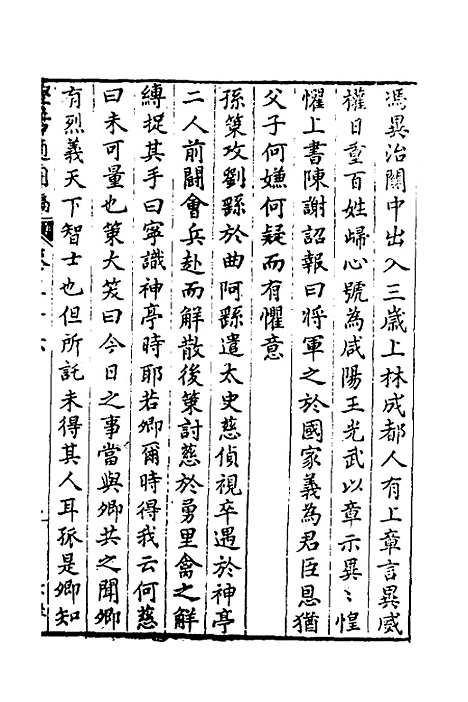 馮異治關中出入三歲上林成都人有上章言異威
權日重百姓歸心號為咸陽王光武以章示異〻惶
懼上書陳謝詔報曰將軍之於國家義為君臣恩猶
父子何嫌何疑而有懼意
孫策攻劉繇於曲阿繇遣太史慈偵視卒遇於神亭
二人前鬭會兵赴而解散後策討慈於勇里禽之解
縛捉其手曰寧識神亭時耶若卿爾時得我云何慈
曰未可量也策大笑曰今日之事當與卿共之聞卿
有烈義天下智士也但所託未得其人耳孤是卿知